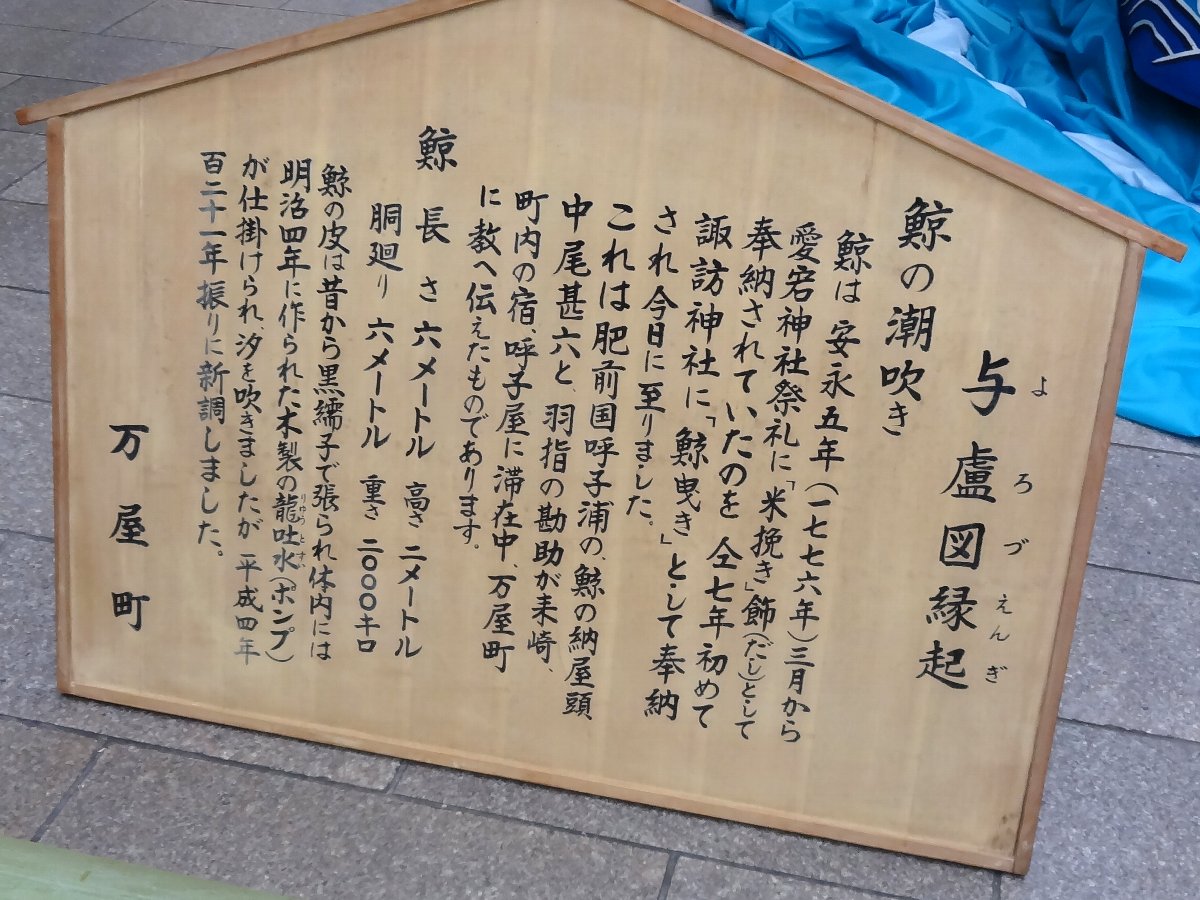 与盧図縁起
よろづえんぎ
鯨の潮吹き
鯨は安永五年(一七七六年)三月から
愛宕神社祭礼に「米挽き」飾(だし)として
奉納されていたのを仝七年初めて
諏訪神社に「鯨曳き」として奉納
され今日に至りました。
これは肥前国呼子浦の、鯨の納屋頭
中尾甚六と、羽指の勘助が来崎、
町内の宿、呼子屋に滞在中、万屋町
に教へ伝えたものであります。
鯨 長さ 六メートル 高さ 二メートル
胴廻り 六メートル 重さ 二〇〇〇キロ
鯨の皮は昔から黒繻子で張られ体内には
明治四年に作られた木製の龍吐水(ポンプ)
りゅうとすい
が仕掛けられ、汐を吹きましたが平成四年
百二十一年振りに新調しました。
万屋町